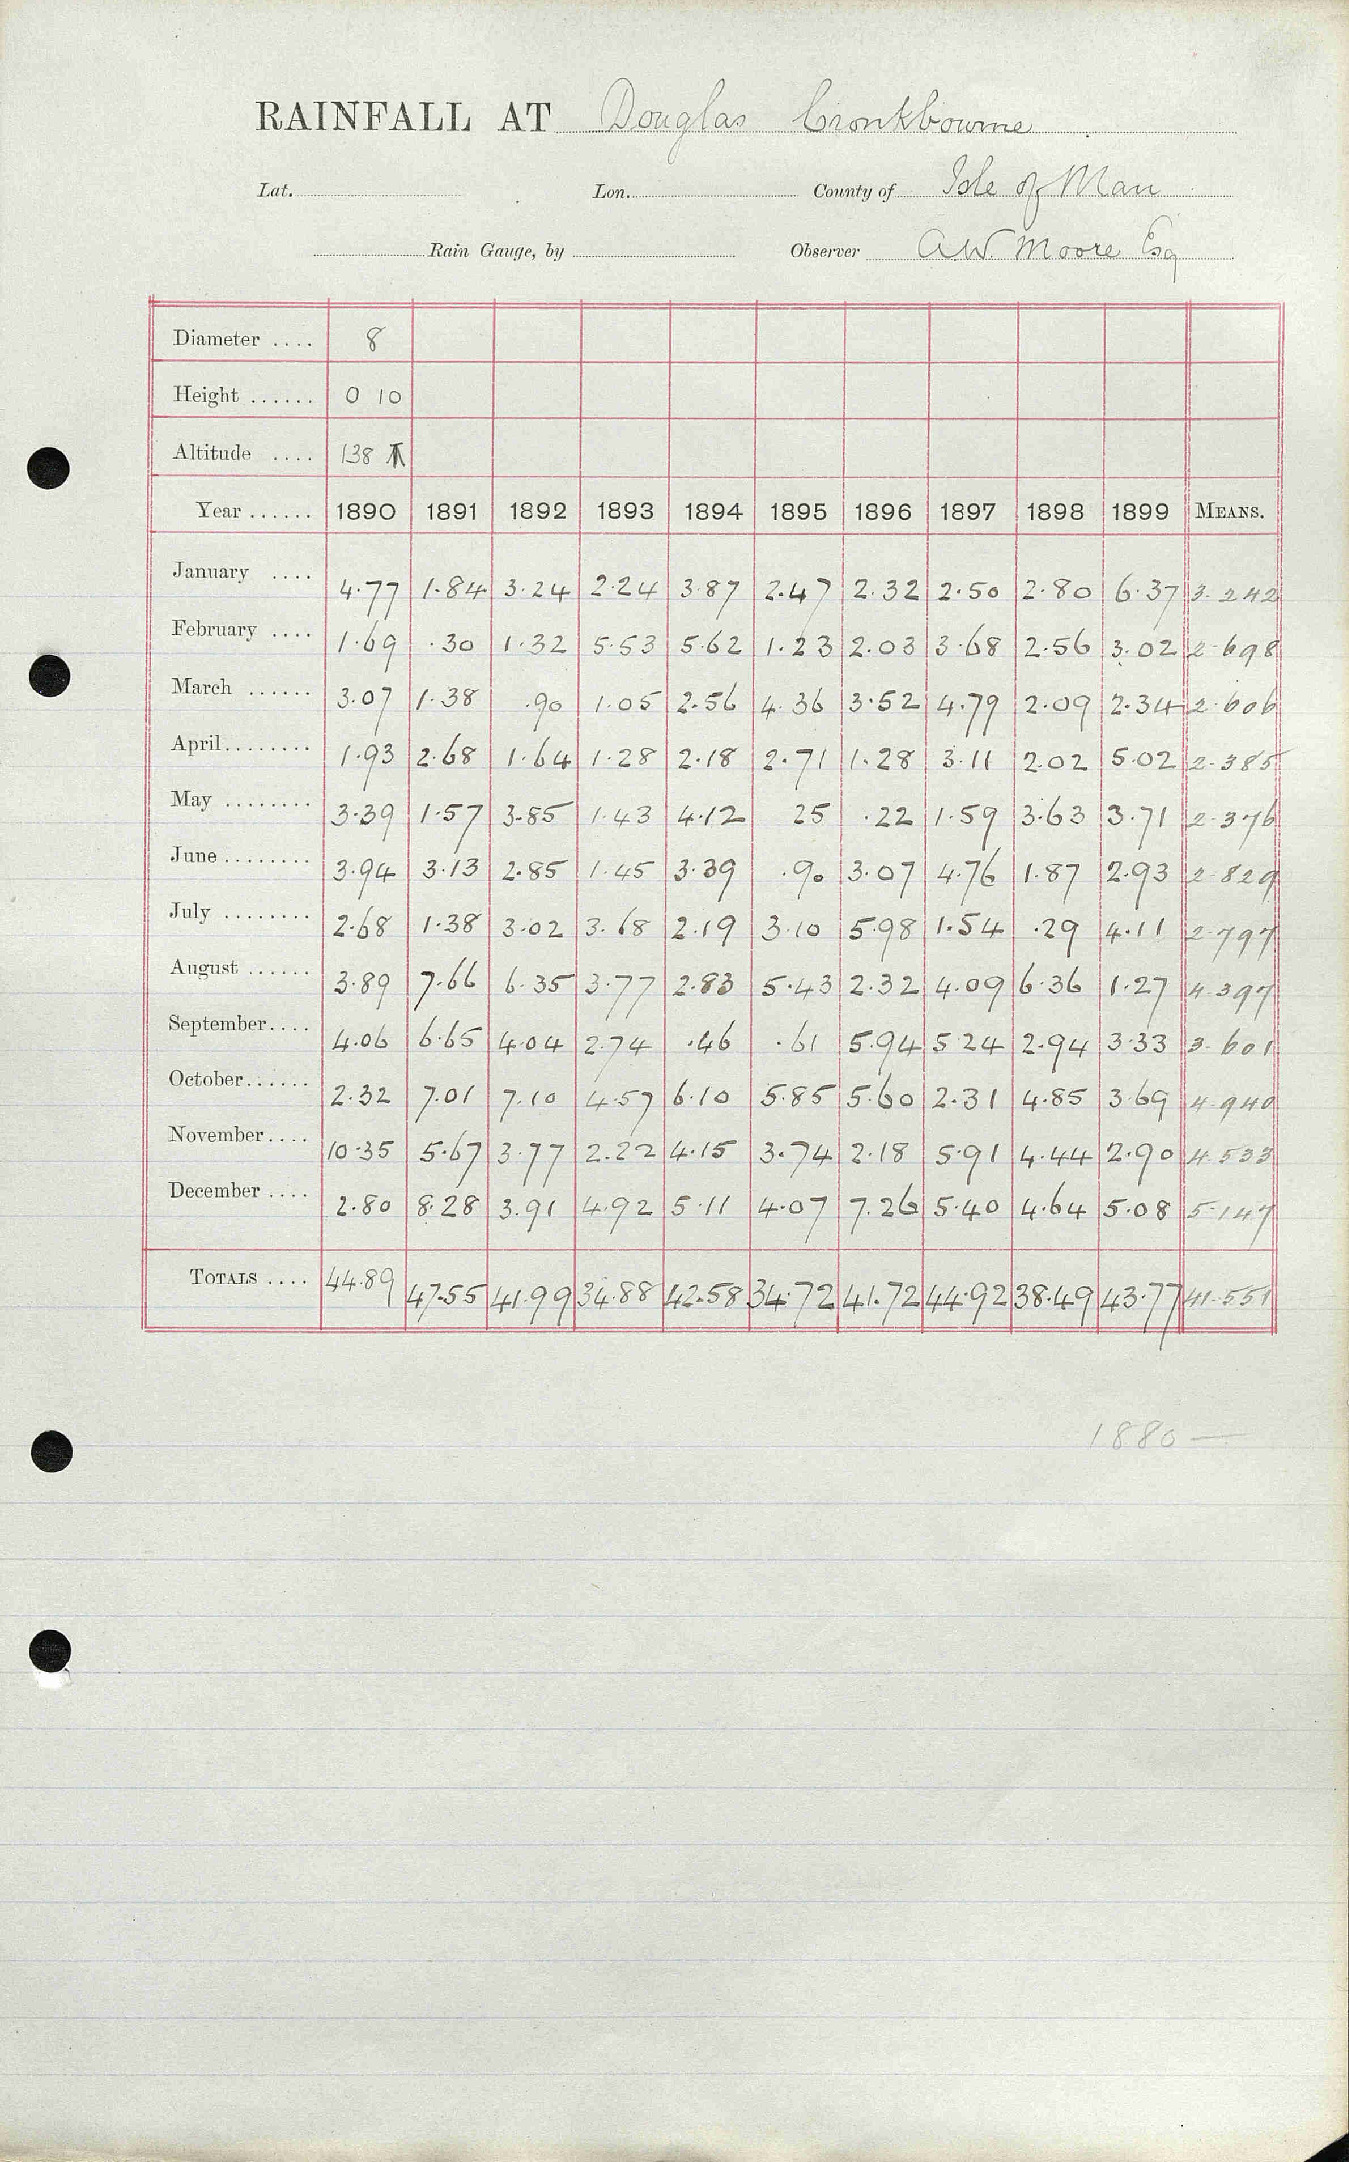 RAINFALL AT Douglas Cronkbourne
Lat. Lon. County of Isle of Man
Rain Gauge, by Observer A W Moore Esq
Diameter .... 8
Height ...... 0 10
Altitude .... 138
Year ...... 1890 1891 1892 1893 1894 1895 1896 1897 1898 1899 MEANS.
January .... 4.77 1.84 3.24 2.24 3.87 2.47 2.32 2.50 2.80 6.37 3.242
February .... 1.69 .30 1.32 5.53 5.62 1.23 2.03 3.68 2.56 3.02 2.698
March ...... 3.07 1.38 .90 1.05 2.56 4.36 3.52 4.79 2.09 2.34 2.606
April........ 1.93 2.68 1.64 1.28 2.18 2.71 1.28 3.11 2.02 5.02 2.385
May ........ 3.39 1.57 3.85 1.43 4.12 25 .22 1.59 3.63 3.71 2.376
June ........ 3.94 3.13 2.85 1.45 3.39 .90 3.07 4.76 1.87 2.93 2.829
July ........ 2.68 1.38 3.02 3.68 2.19 3.10 5.98 1.54 .29 4.11 2.797
August ...... 3.89 7.66 6.35 3.77 2.83 5.43 2.32 4.09 6.36 1.27 4.397
September.... 4.06 6.65 4.04 2.74 .46 .61 5.94 5.24 2.94 3.33 3.601
October...... 2.32 7.01 7.10 4.57 6.10 5.85 5.60 2.31 4.85 3.69 4.940
November.... 10.35 5.67 3.77 2.22 4.15 3.74 2.18 5.91 4.44 2.90 4.533
December .... 2.80 8.28 3.91 4.92 5.11 4.07 7.26 5.40 4.64 5.08 5.147
TOTALS .... 44.89 47.55 41.99 34.88 42.58 34.72 41.72 44.92 38.49 43.77 41.551
1880 —